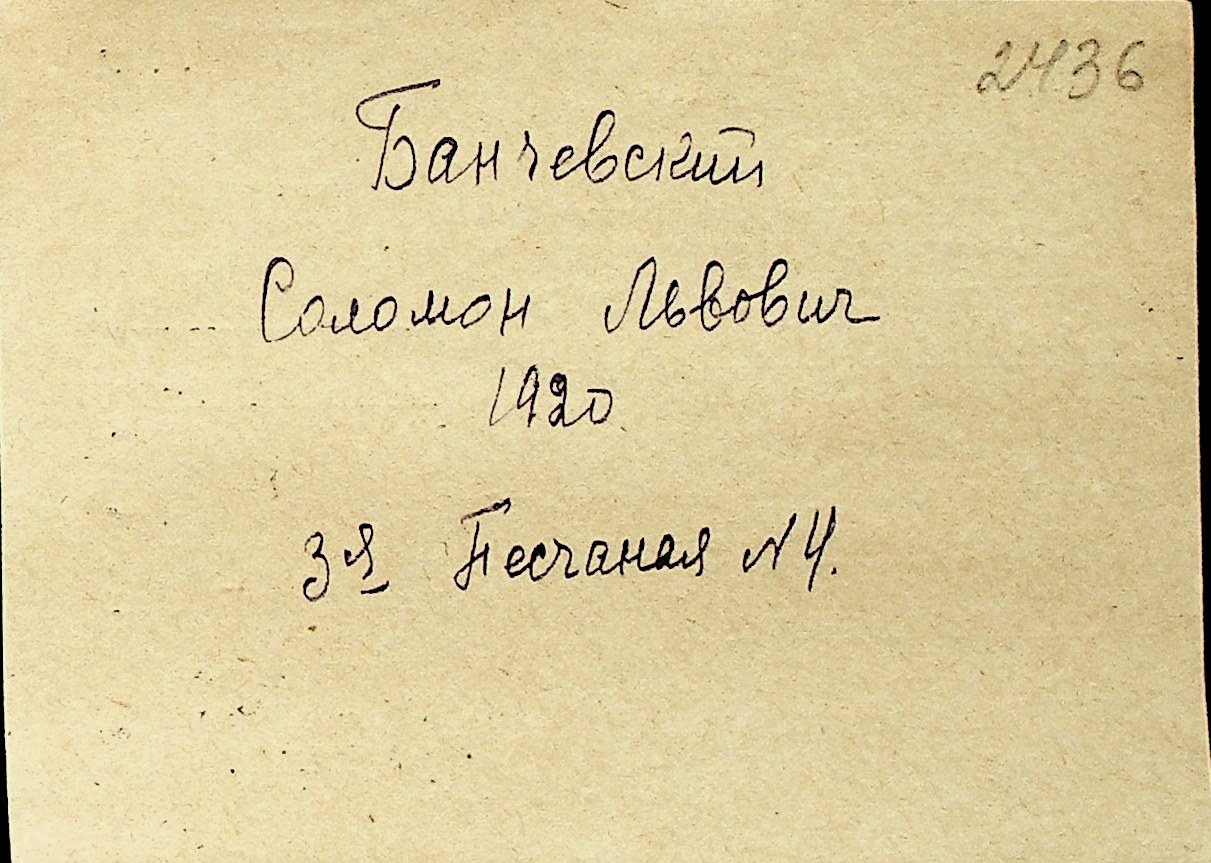 2436
Банчевский
Соломон Львович
1920
3я Песчаная N 4.